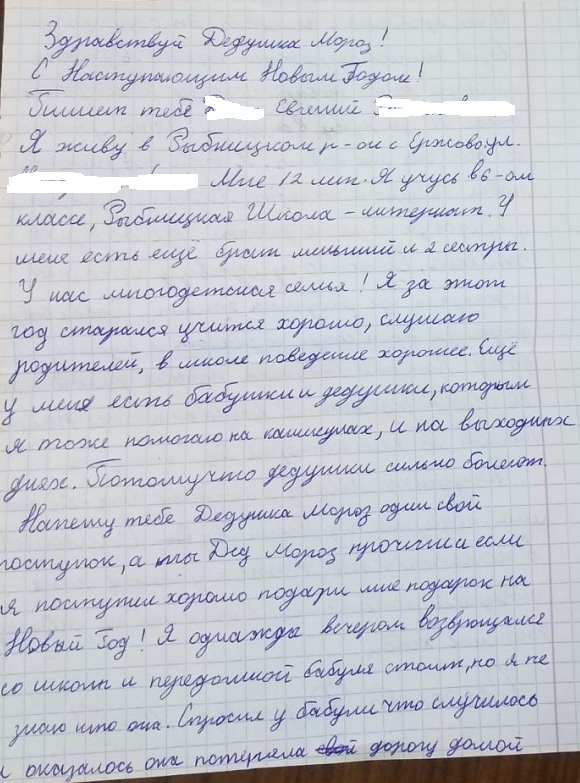 Здравствуй Дедушка Мороз!
С Наступающим Новым Годом!
Пишет тебе Евгений
Я живу в Рыбницком р-он с Ержово ул.
Мне 12 лет. Я учусь в 6-ом
классе, Рыбницкая Школа-интернат. У
меня есть ещё брат меньший и 2 сестры.
У нас многодетская семья! Я за этот
год старался учится хорошо, слушаю
родителей, в школе поведение хорошее. Ещё
у меня есть бабушки и дедушки, которым
я тоже помогаю на каникулах, и на выходных
днях. Потомучто дедушки сильно болеют.
Напешу тебе Дедушка Мороз один свой
поступок, а ты Дед Мороз прочти и если
я поступил хорошо подари мне подарок на
Новый Год! Я однажды вечером возврощался
со школы и передомной бабуля стоит, но я не
знаю кто она. Спросил у бабули что случилось
и оказалось она потеряла дорогу домой